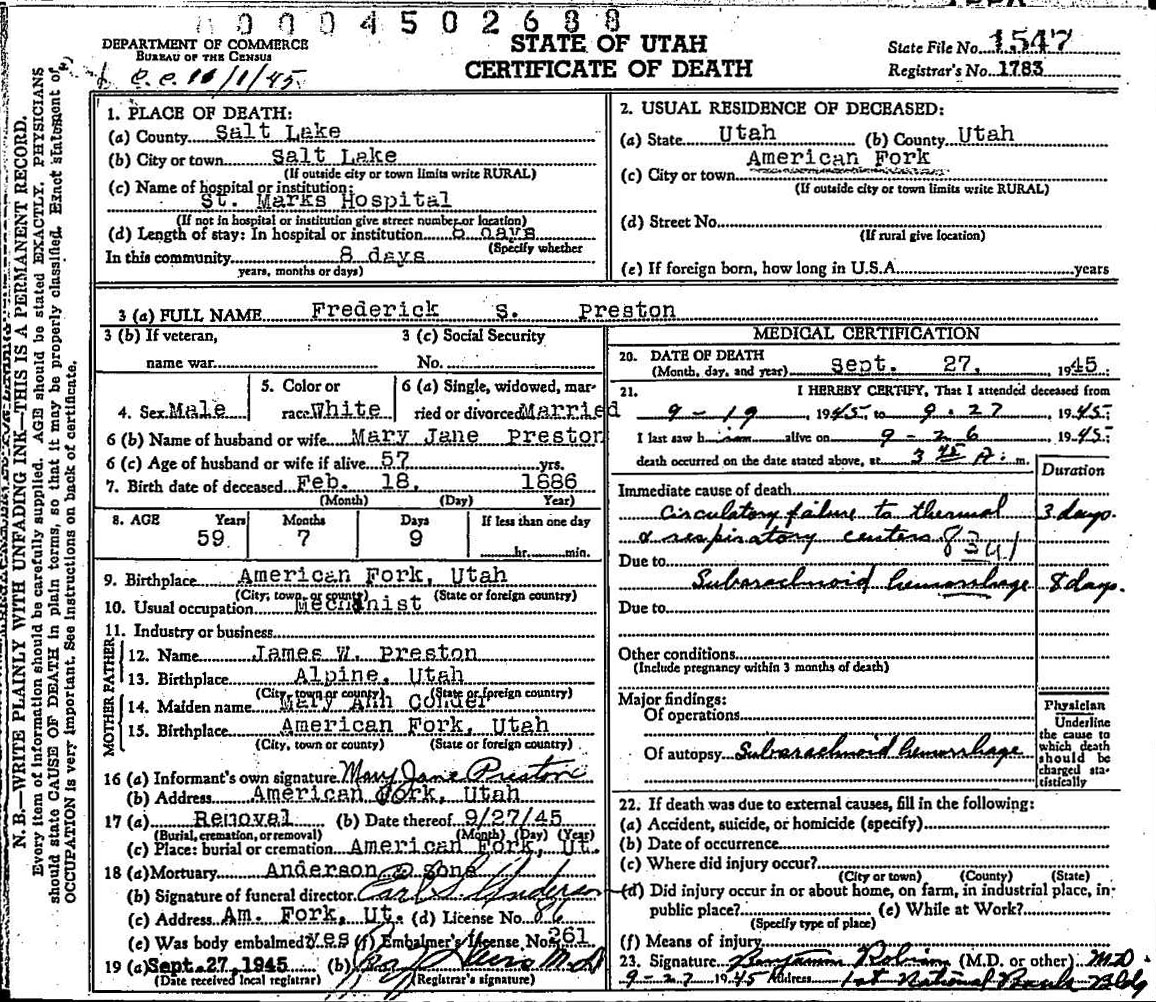 00004502688
DEPARTMENT OF COMMERCE
BUREAU OF THE CENSUS
c.c. 11/1/45
STATE OF UTAH
CERTIFICATE OF DEATH
State File No. 1547
Registrar's No. 1783
N. B.—WRITE PLAINLY WITH UNFADING INK—THIS IS A PERMANENT RECORD.
Every item of information should be carefully supplied. AGE should be stated EXACTLY. PHYSICIANS
should state CAUSE OF DEATH in plain terms, so that it may be properly classified. Exact statement of
OCCUPATION is very important. See instructions on back of certificate.
1. PLACE OF DEATH:
(a) County Salt Lake
(b) City or town Salt Lake
(If outside city or town limits write RURAL)
(c) Name of hospital or institution:
St. Marks Hospital
(If not in hospital or institution give street number or location)
(d) Length of stay: In hospital or institution 8 days
(Specify whether
In this community 8 days
years, months or days)
2. USUAL RESIDENCE OF DECEASED:
(a) State Utah (b) County Utah
(c) City or town American Fork
(If outside city or town limits write RURAL)
(d) Street No.
(If rural give location)
(e) If foreign born, how long in U.S.A. years
3 (a) FULL NAME Frederick S. Preston
3 (b) If veteran,
name war
3 (c) Social Security
No.
4. Sex Male
5. Color or
race White
6 (a) Single, widowed, mar-
ried or divorced Married
6 (b) Name of husband or wife Mary Jane Preston
6 (c) Age of husband or wife if alive 57 yrs.
7. Birth date of deceased Feb. 18, 1886
(Month) (Day) Year)
8. AGE Years Months Days If less than one day
59 7 9 hr. min.
9. Birthplace American Fork, Utah
(City, town, or county) (State or foreign country)
10. Usual occupation Mechanist
11. Industry or business
FATHER
12. Name James W. Preston
13. Birthplace Alpine, Utah
(City, town or county) (State or foreign country)
MOTHER
14. Maiden name Mary Ann Conder
15. Birthplace American Fork, Utah
(City, town or county) (State or foreign country)
16 (a) Informant's own signature Mary Jane Preston
(b) Address American Fork, Utah
17 (a) Removal (b) Date thereof 9/27/45
(Burial, cremation, or removal) (Month) (Day) (Year)
(c) Place: burial or cremation American Fork, Ut.
18 (a) Mortuary Anderson & Sons
(b) Signature of funeral director Carl S. Anderson
(c) Address Am. Fork, Ut. (d) License No. 86
(e) Was body embalmed? yes (f) Embalmer's License No. 261
19 (a) Sept. 27, 1945 (b) M.D.
(Date received local registrar) (Registrar's signature)
MEDICAL CERTIFICATION
20. DATE OF DEATH
(Month, day, and year) Sept. 27, 1945
21. I HEREBY CERTIFY, That I attended deceased from
9-19, 1945, to 9-27, 1945
I last saw him alive on 9-26, 1945
death occurred on the date stated above, at 3 45 A. m.
Duration
Immediate cause of death
Circulatory failure to thermal 3 days.
& respiratory centers 8341
Due to
Subarachnoid hemorrhage 8 days.
Due to
Other conditions
(Include pregnancy within 3 months of death)
Major findings:
Of operations
Of autopsy Subarachnoid hemorrhage
Physician
Underline
the cause to
which death
should be
charged sta-
tistically
22. If death was due to external causes, fill in the following:
(a) Accident, suicide, or homicide (specify)
(b) Date of occurrence
(c) Where did injury occur?
(City or town) (County) (State)
(d) Did injury occur in or about home, on farm, in industrial place, in-
public place? (e) While at Work?
(Specify type of place)
(f) Means of injury
23. Signature Benjamin Robison (M.D. or other) M.D.
9-27, 1945 Address 1st National Bank Bldg